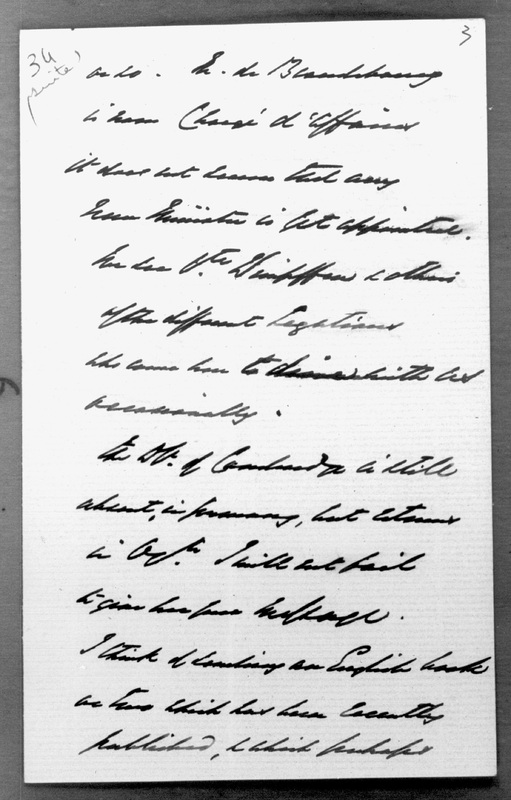 3
34
(suite)
or so. M. de Brandebourg
is now Chargé d'affaires
it does not seem that any
new Minister is yet appointed.
We see Cte Wimpffen & others
of the different Legations
who come here to dinner with us
occasionally.
The Ds. of Cambridge is still
absent, in Germany, but returns
in Octr. I will not fail
to give her your message.
I think of sending an English book
or two which has been recently
published, & which perhaps